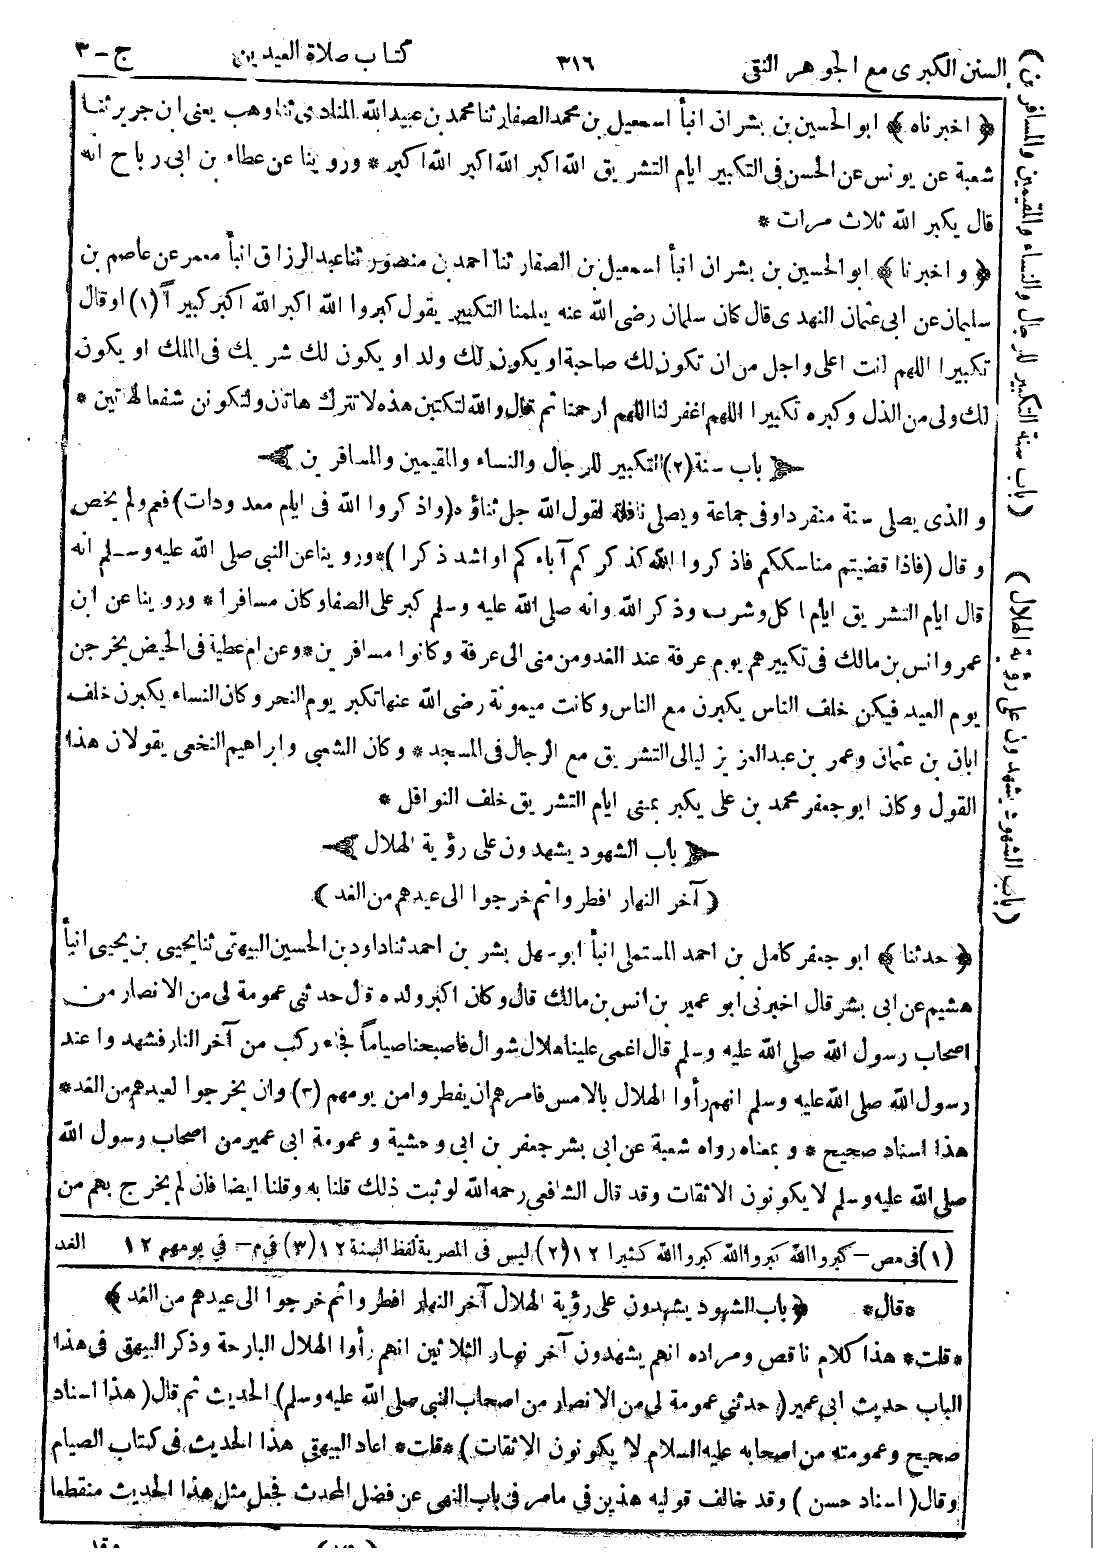 السنن الكبرى مع الجوهر النقى ٣١٦ كتاب صلاة العيدين ج-٣
﴿ اخبرناه ﴾ ابو الحسين بن بشران انبأ اسمعيل بن محمد الصفار ثنا محمد بن عبيد الله المنادى ثنا وهب يعنى ابن جرير ثنا
شعبة عن يونس عن الحسن فى التكبير ايام التشريق الله اكبر الله اكبر الله اكبر * وروينا عن عطاء بن ابى رباح انه
قال يكبر الله ثلاث مرات *
﴿ و اخبرنا ﴾ ابو الحسين بن بشران انبأ اسمعيل بن الصفار ثنا احمد بن منصور ثنا عبد الرزاق انبأ معمر عن عاصم بن
سليمان عن ابى عثمان النهدى قال كان سلمان رضى الله عنه يعلمنا التكبير يقول كبروا الله اكبر الله اكبر كبيرآ (١) اوقال
تكبيرا اللهم انت اعلى واجل من ان تكون لك صاحبة او يكون لك ولد او يكون لك شريك فى الملك او يكون
لك ولى من الذل وكبره تكبيرا اللهم اغفر لنا اللهم ارحمنا ثم قال والله لتكتبن هذه لا تترك هاتان ولتكونن شفعا لهاتين *
باب سنة (٢) التكبير للرجال والنساء والمقيمين والمسافرين
و الذى يصلى سنة منفردا وفى جماعة ويصلى نافلة لقول الله جل ثناؤه (واذكروا الله فى ايام معدودات) فعم ولم يخص
و قال (فاذا قضيتم مناسككم فاذكروا الله كذكركم آباءكم او اشد ذكرا) * وروينا عن النبى صلى الله عليه وسلم انه
قال ايام التشريق ايام اكل وشرب وذكر الله وانه صلى الله عليه وسلم كبر على الصفا وكان مسافرا * وروينا عن ابن
عمر وانس بن مالك فى تكبيرهم يوم عرفة عند الغدو من منى الى عرفة وكانوا مسافرين * وعن ام عطية فى الحيض يخرجن
يوم العيد فيكن خلف الناس يكبرن مع الناس وكانت ميمونة رضى الله عنها تكبر يوم النحر وكان النساء يكبرن خلف
ابان بن عثمان وعمر بن عبد العزيز ليالى التشريق مع الرجال فى المسجد * وكان الشعبى وابراهيم النخعى يقولان هذا
القول وكان ابو جعفر محمد بن على يكبر بمنى ايام التشريق خلف النوافل *
باب الشهود يشهدون على رؤية الهلال
(آخر النهار افطروا ثم خرجوا الى عيدهم من الغد)
﴿ حدثنا ﴾ ابو جعفر كامل بن احمد المستملى انبأ ابو سهل بشر بن احمد ثنا داود بن الحسين البيهقى ثنا يحيى بن يحيى انبأ
هشيم عن ابى بشر قال اخبرنى ابو عمير بن انس بن مالك قال وكان اكبر ولده قال حدثنى عمومة لى من الانصار من
اصحاب رسول الله صلى الله عليه وسلم قال اغمى علينا هلال شوال فاصبحنا صياماً فجاء ركب من آخر النار فشهدوا عند
رسول الله صلى الله عليه وسلم انهم رأوا الهلال بالامس فامرهم ان يفطروا من يومهم (٣) وان يخرجوا لعيدهم من الغد *
هذا اسناد صحيح * و بمعناه رواه شعبة عن ابى بشر جعفر بن ابى وحشية و عمومة ابى عمير من اصحاب رسول الله
صلى الله عليه وسلم لا يكونون الا ثقات وقد قال الشافعى رحمه الله لو ثبت ذلك قلنا به وقلنا ايضا فان لم يخرج بهم من
(١) فى مص - كبروا الله كبروا الله كبروا الله كثيرا ١٢ (٢) ليس فى المصرية لفظ السنة ١٢ (٣) في م - في يومهم ١٢ الغد
*قال* ﴿ باب الشهود يشهدون على رؤية الهلال آخر النهار افطروا ثم خرجوا الى عيدهم من الغد ﴾
*قلت* هذا كلام ناقص ومراده انهم يشهدون آخر نهار الثلاثين انهم رأوا الهلال البارحة وذكر البيهقى فى هذا
الباب حديث ابى عمير (حدثنى عمومة لى من الانصار من اصحاب النبى صلى الله عليه وسلم) الحديث ثم قال (هذا اسناد
صحيح وعمومته من اصحابه عليه السلام لا يكونون الا ثقات) *قلت* اعاد البيهقى هذا الحديث فى كتاب الصيام
وقال (اسناد حسن) وقد خالف قوليه هذين في مامر فى باب النهى عن فضل المحدث فجعل مثل هذا الحديث منقطعا
(باب سنة التكبير للرجال والنساء والمقيمين والمسافرين)
(باب الشهود يشهدون على رؤية الهلال)